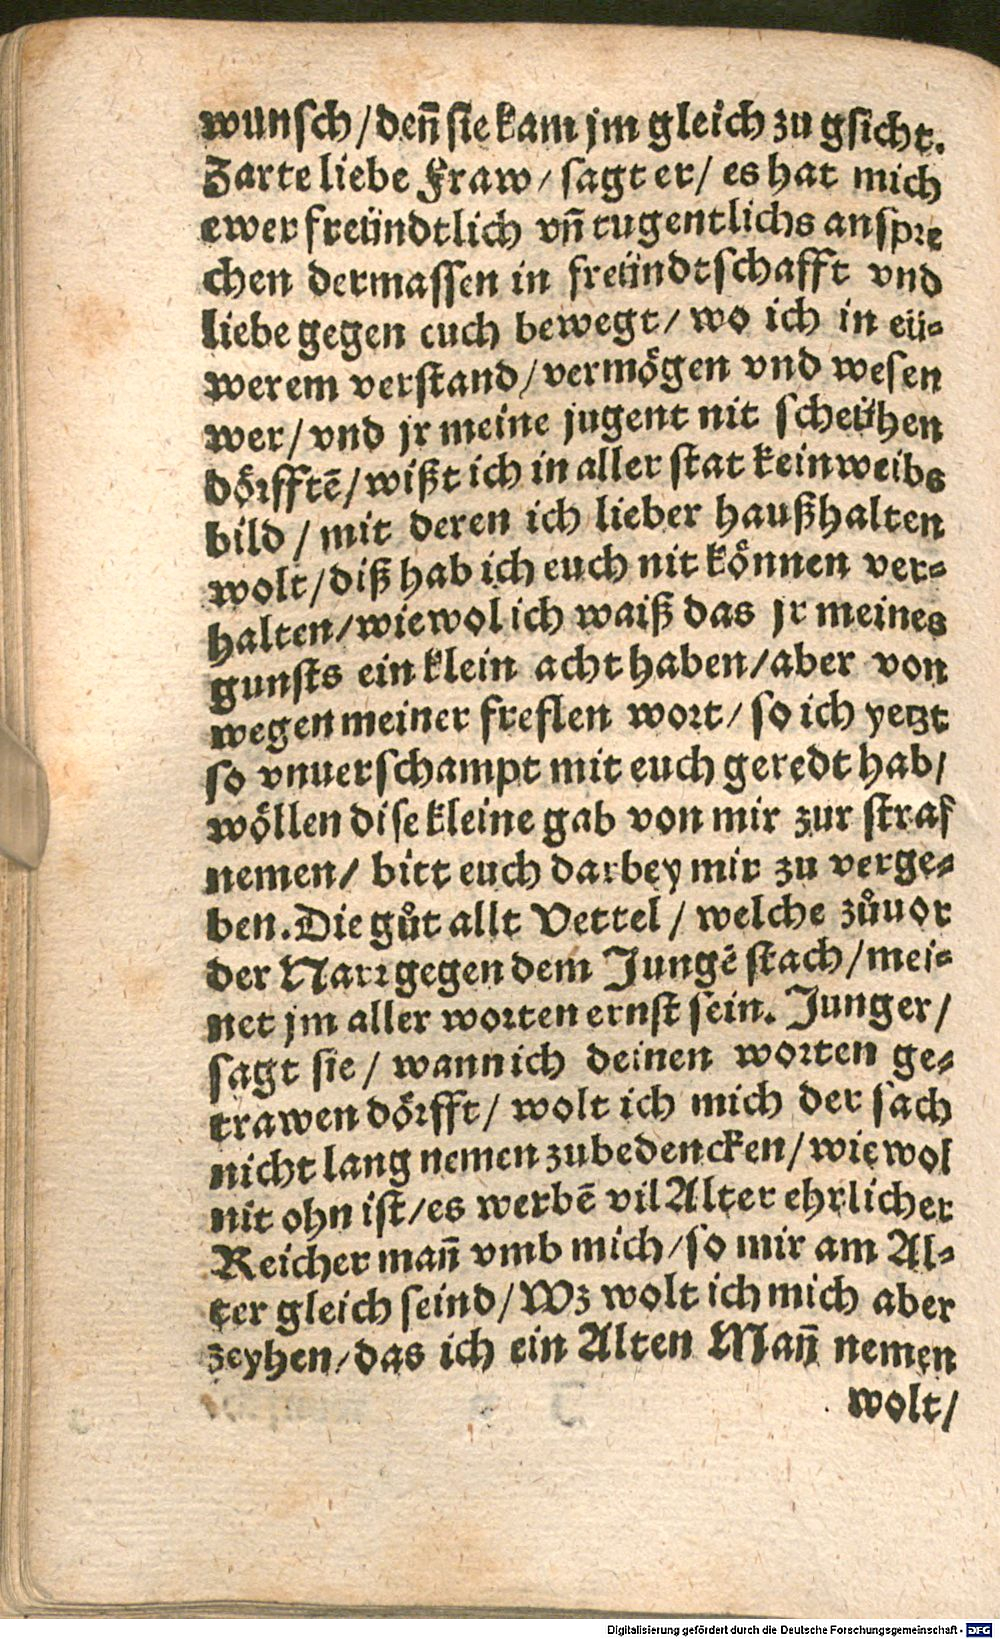 wunsch/ deñ sie kam jm gleich zu gsicht.
Zarte liebe Fraw/ sagt er/ es hat mich
ewer freündtlich vñ tugentlichs anspre
chen dermassen in freündtschafft vnd
liebe gegen euch bewegt/ wo ich in eü⸗
werem verstand/ vermögen vnd wesen
wer/ vnd jr meine jugent nit scheühen
dörfftẽ/ wißt ich in aller stat kein weibs
bild/ mit deren ich lieber haußhalten
wolt/ diß hab ich euch nit können ver⸗
halten/ wiewol ich waiß das jr meines
gunsts ein klein acht haben/ aber von
wegen meiner freflen wort/ so ich yetzt
so vnuerschampt mit euch geredt hab/
wöllen dise kleine gab von mir zur straf
nemen/ bitt euch darbey mir zu verge⸗
ben. Die gůt allt Vettel/ welche zůuor
der Narr gegen dem Jungẽ stach/ mei⸗
net jm aller worten ernst sein. Junger/
sagt sie/ wann ich deinen worten ge⸗
trawen dörfft/ wolt ich mich der sach
nicht lang nemen zubedencken/ wiewol
nit ohn ist/ es werbẽ vil Alter ehrlicher
Reicher mañ vmb mich/ so mir am Al⸗
ter gleich seind/ Wz wolt ich mich aber
zeyhen/ das ich ein Alten Mañ nemen
wolt/
Digitalisierung gefördert durch die Deutsche Forschungsgemeinschaft - DFG